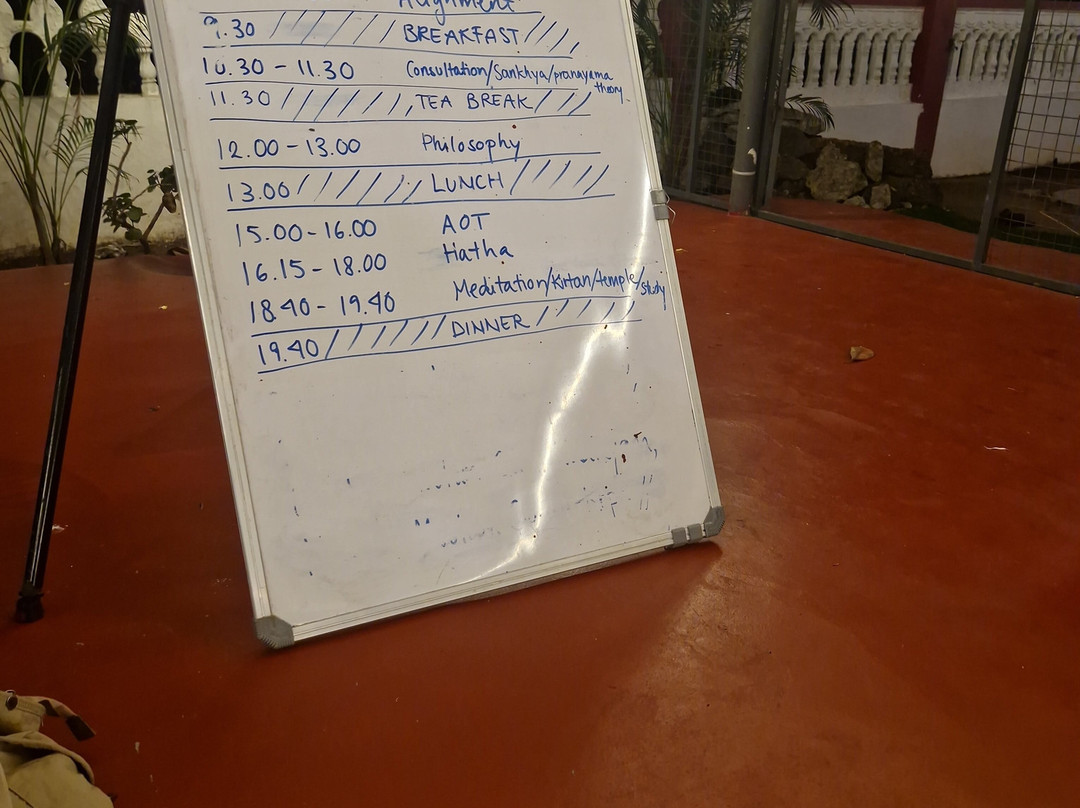 Alignment
9.30 BREAKFAST
10.30 - 11.30 Consultation/Sankhya/pranayama theory
11.30 TEA BREAK
12.00 - 13.00 Philosophy
13.00 LUNCH
15.00 - 16.00 AOT
16.15 - 18.00 Hatha
18.40 - 19.40 Meditation/Kirtan/temple/study
19.40 DINNER